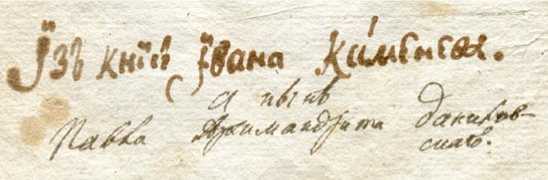 Їзъ книгї Їѵана Кїменскаг.
а нынѣ
Павла Архимандрита Данилов-
скагѡ.